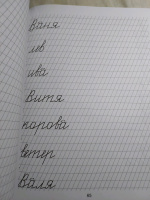 Ваня
лев
ива
Витя
корова
ветер
Валя